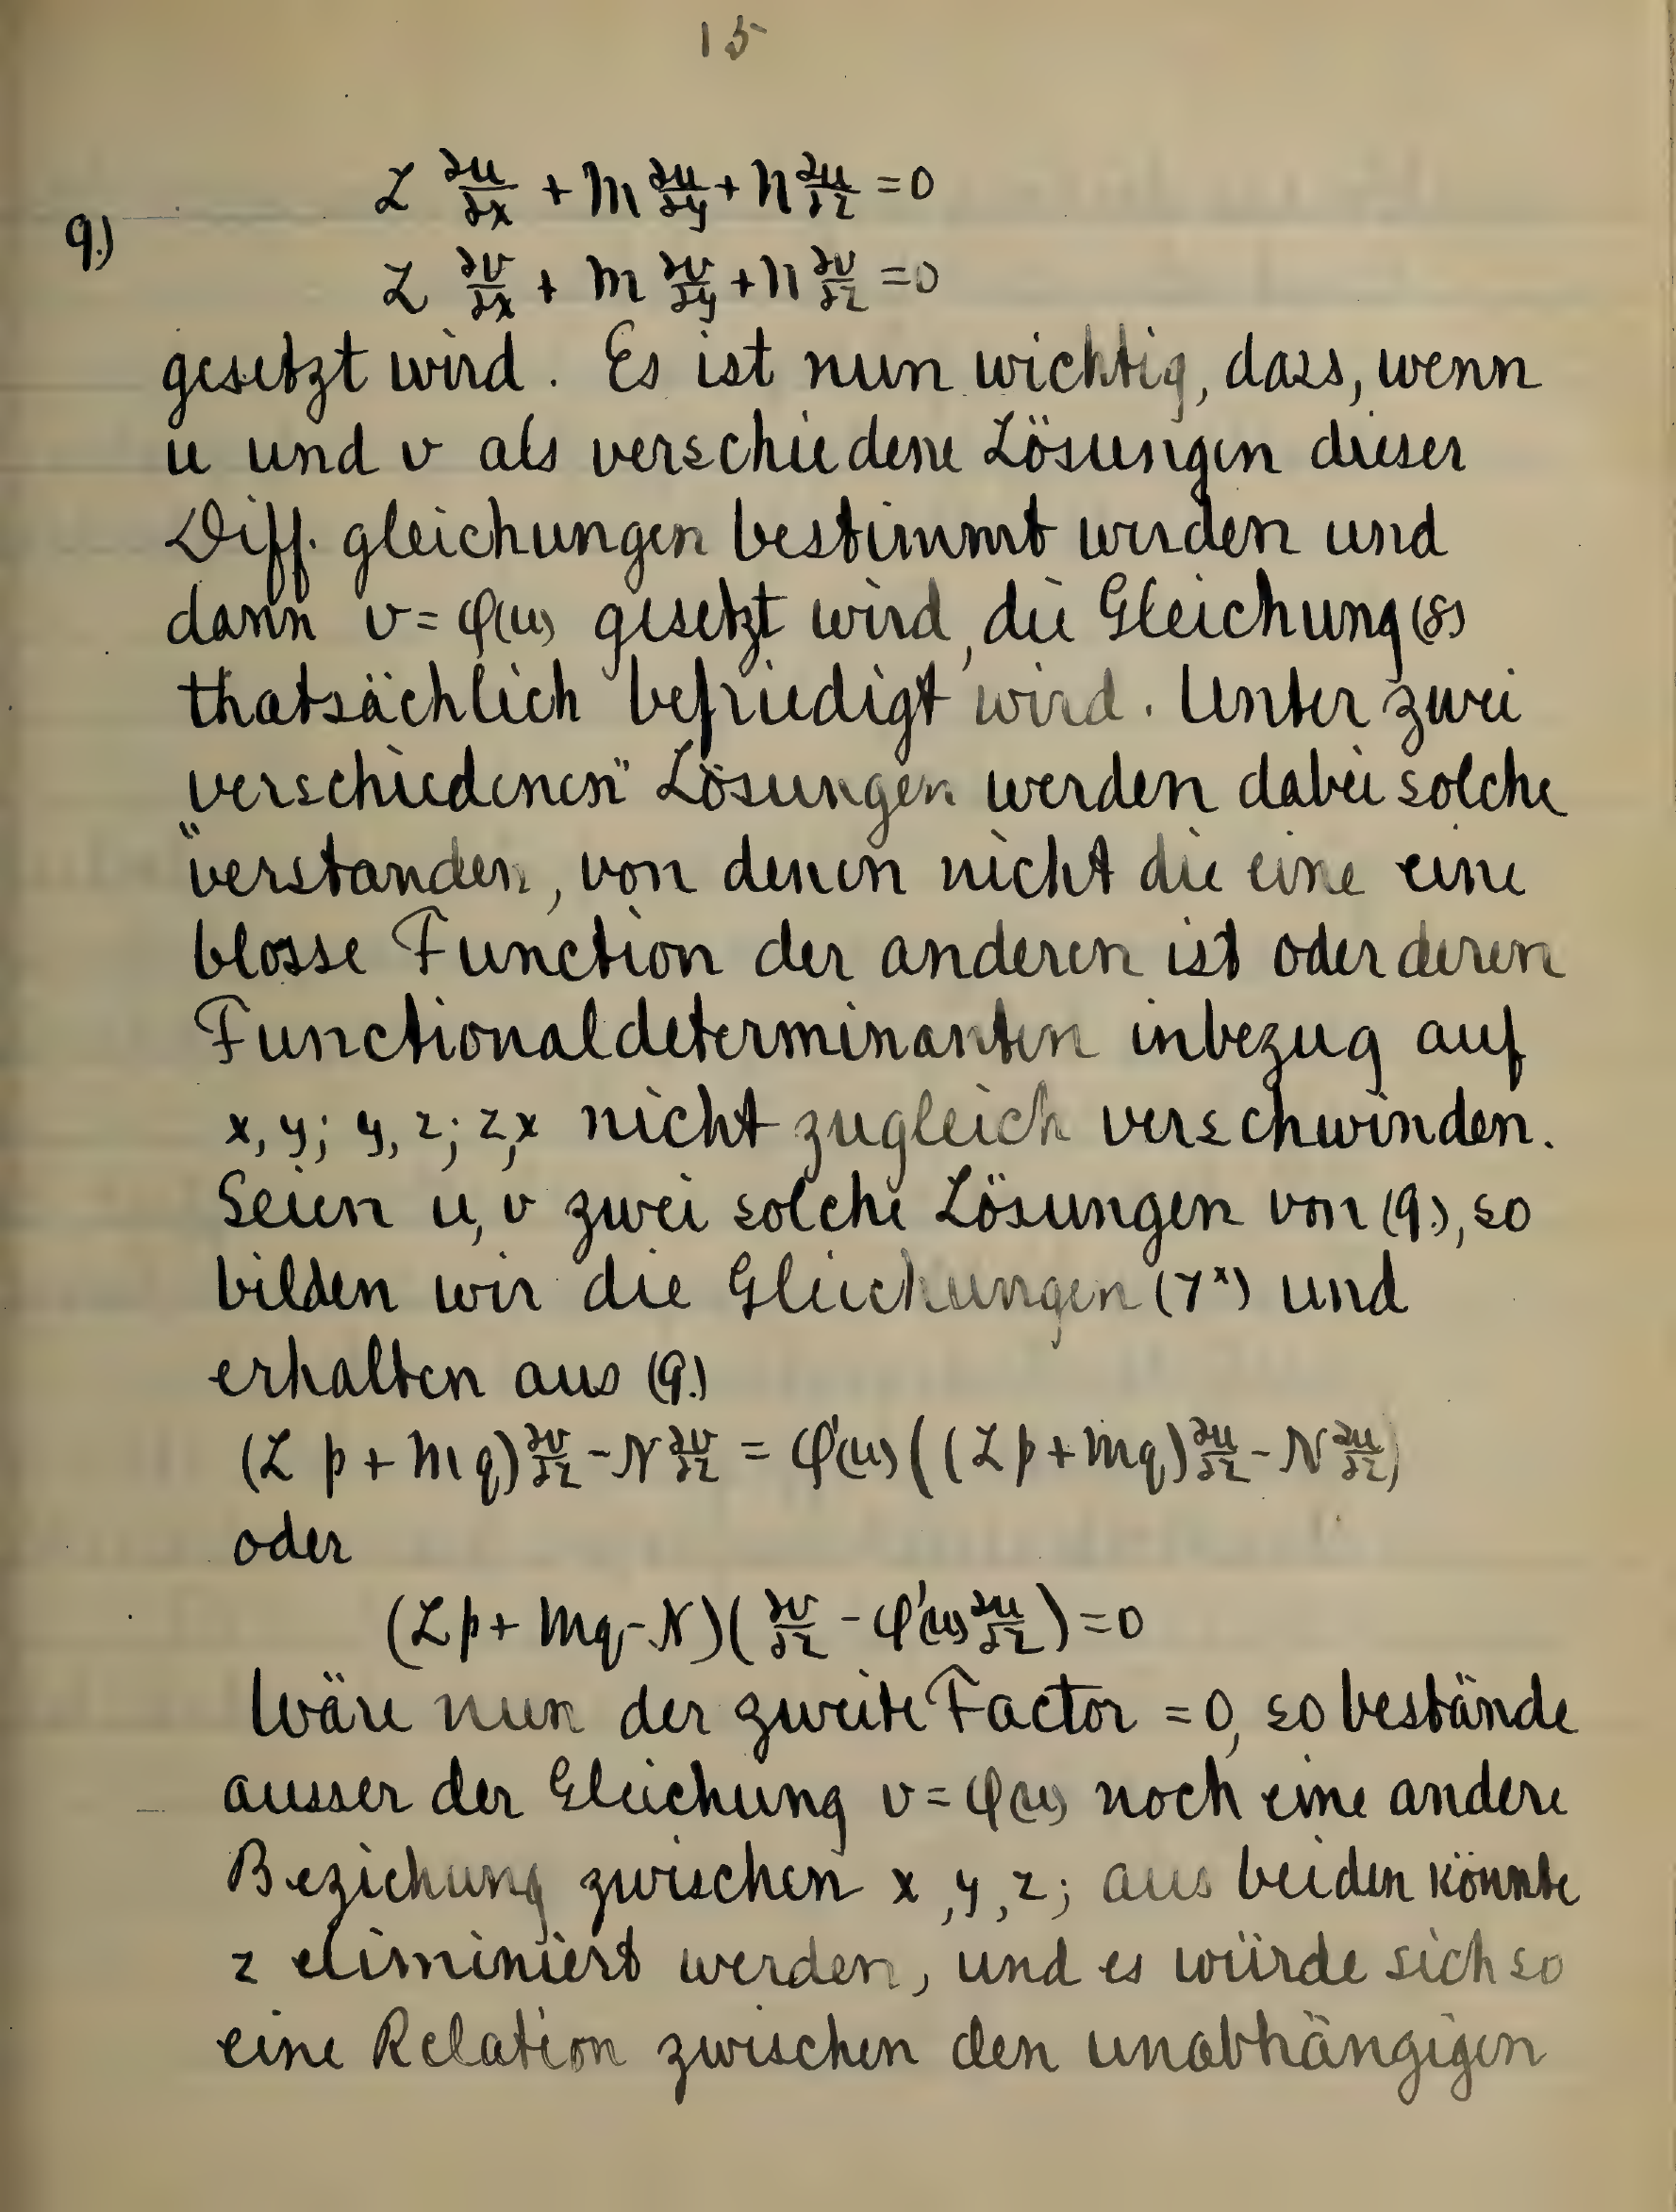 15
L ∂u/∂x + M ∂u/∂y + N ∂u/∂z = 0
9.)
L ∂v/∂x + M ∂v/∂y + N ∂v/∂z = 0
gesetzt wird. Es ist nun wichtig, dass, wenn
u und v als verschiedene Lösungen dieser
Diff. gleichungen bestimmt werden und
dann v = φ(u) gesetzt wird, die Gleichung (8)
thatsächlich befriedigt wird. Unter zwei
„verschiedenen" Lösungen werden dabei solche
verstanden, von denen nicht die eine eine
blosse Function der anderen ist oder deren
Functionaldeterminanten inbezug auf
x, y; y, z; z, x nicht zugleich verschwinden.
Seien u, v zwei solche Lösungen von (9.), so
bilden wir die Gleichungen (7ˣ) und
erhalten aus (9.)
(L p + M q) ∂v/∂z - N ∂v/∂z = φ'(u) ((L p + M q) ∂u/∂z - N ∂u/∂z)
oder
(L p + M q - N)(∂v/∂z - φ'(u) ∂u/∂z) = 0
Wäre nun der zweite Factor = 0, so bestände
ausser der Gleichung v = φ(u) noch eine andere
Beziehung zwischen x, y, z; aus beiden könnte
z eliminiert werden, und es würde sich so
eine Relation zwischen den unabhängigen